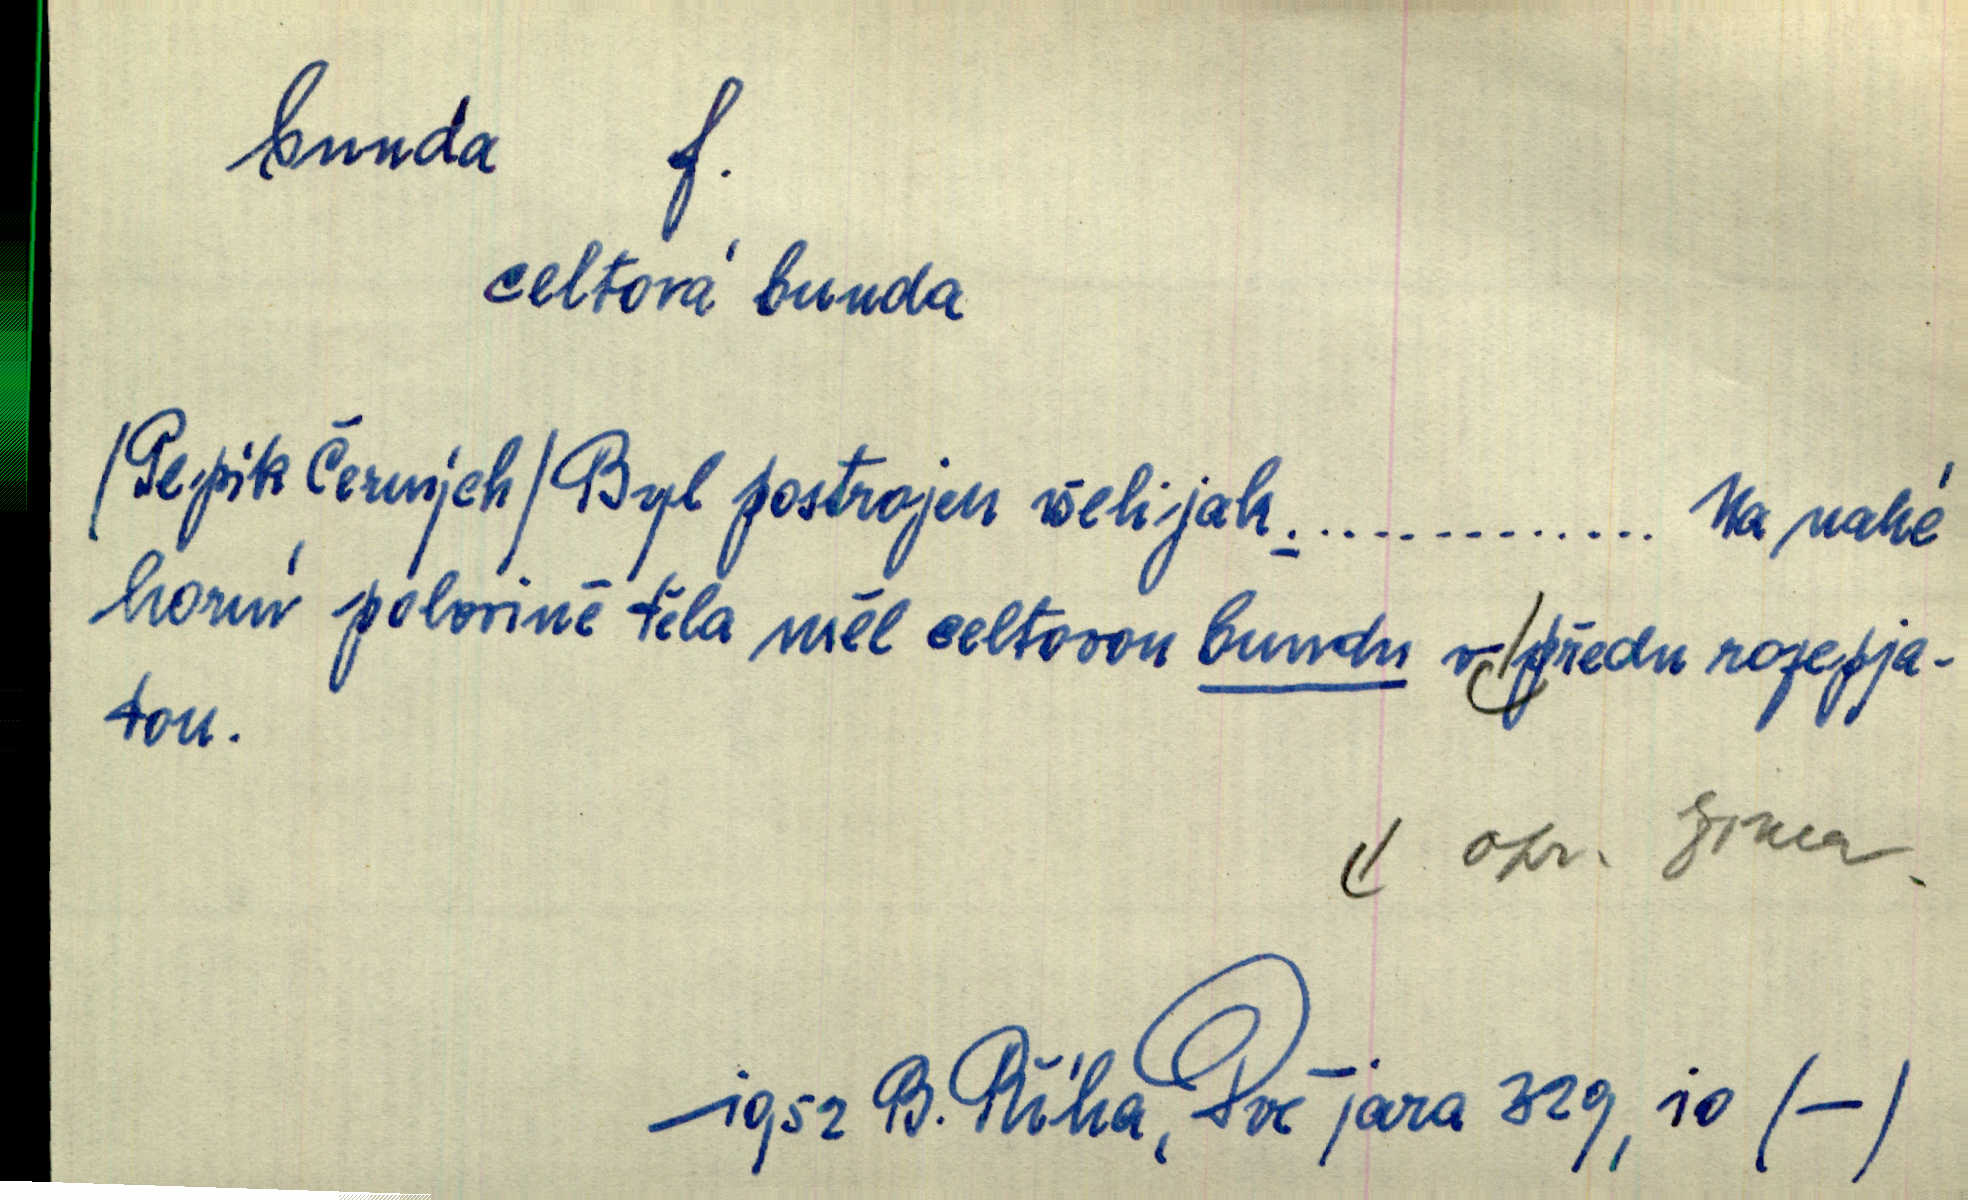 bunda f.
celtová bunda
/Pepík Černých/ Byl postrojen všelijak.............. Na nahé
horní polovině těla měl celtovou bundu vpředu rozepja-
tou.
opr.
1952 B. Říha, Dvě jara 329, 10 (—)